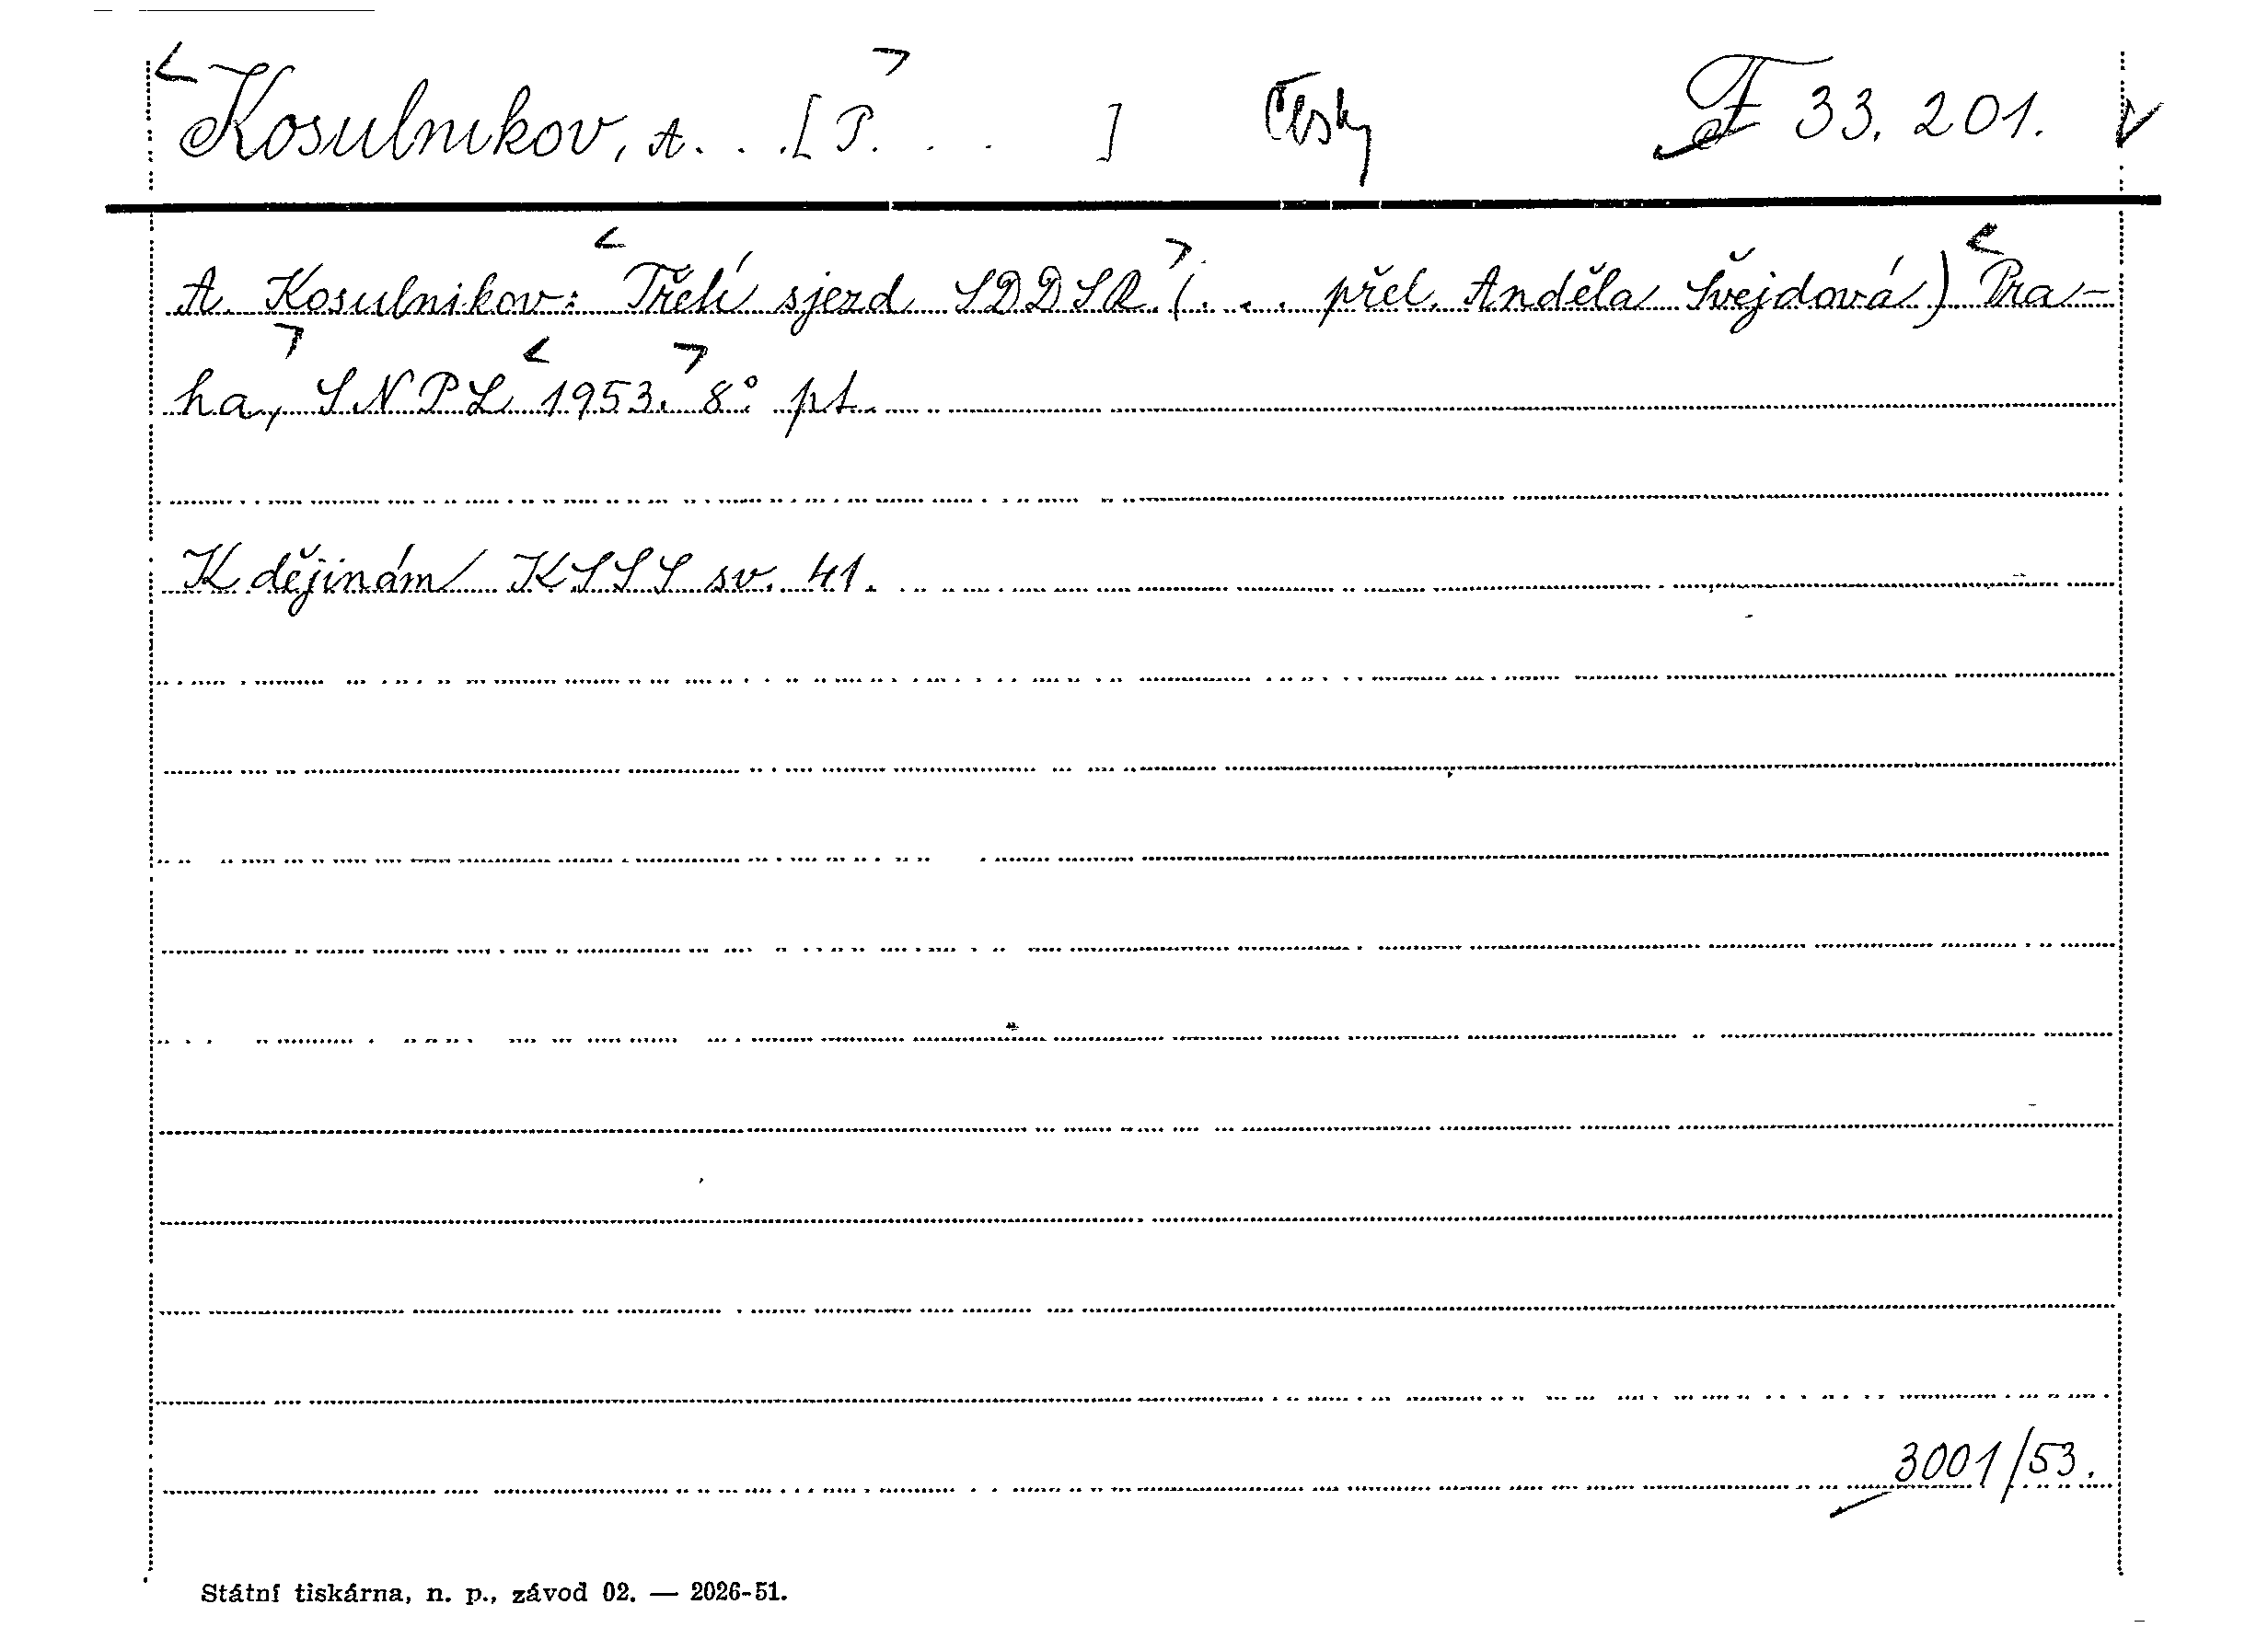 Kosulnikov, A. . . [P. . . ] Česky F 33.201.
A. Kosulnikov: Třetí sjezd SDDSR (. . . přel. Anděla Švejdová) Pra-
ha, SNPL 1953. 8° pt.
K dějinám KSSS sv. 41.
3001/53.
Státní tiskárna, n. p., závod 02. — 2026-51.